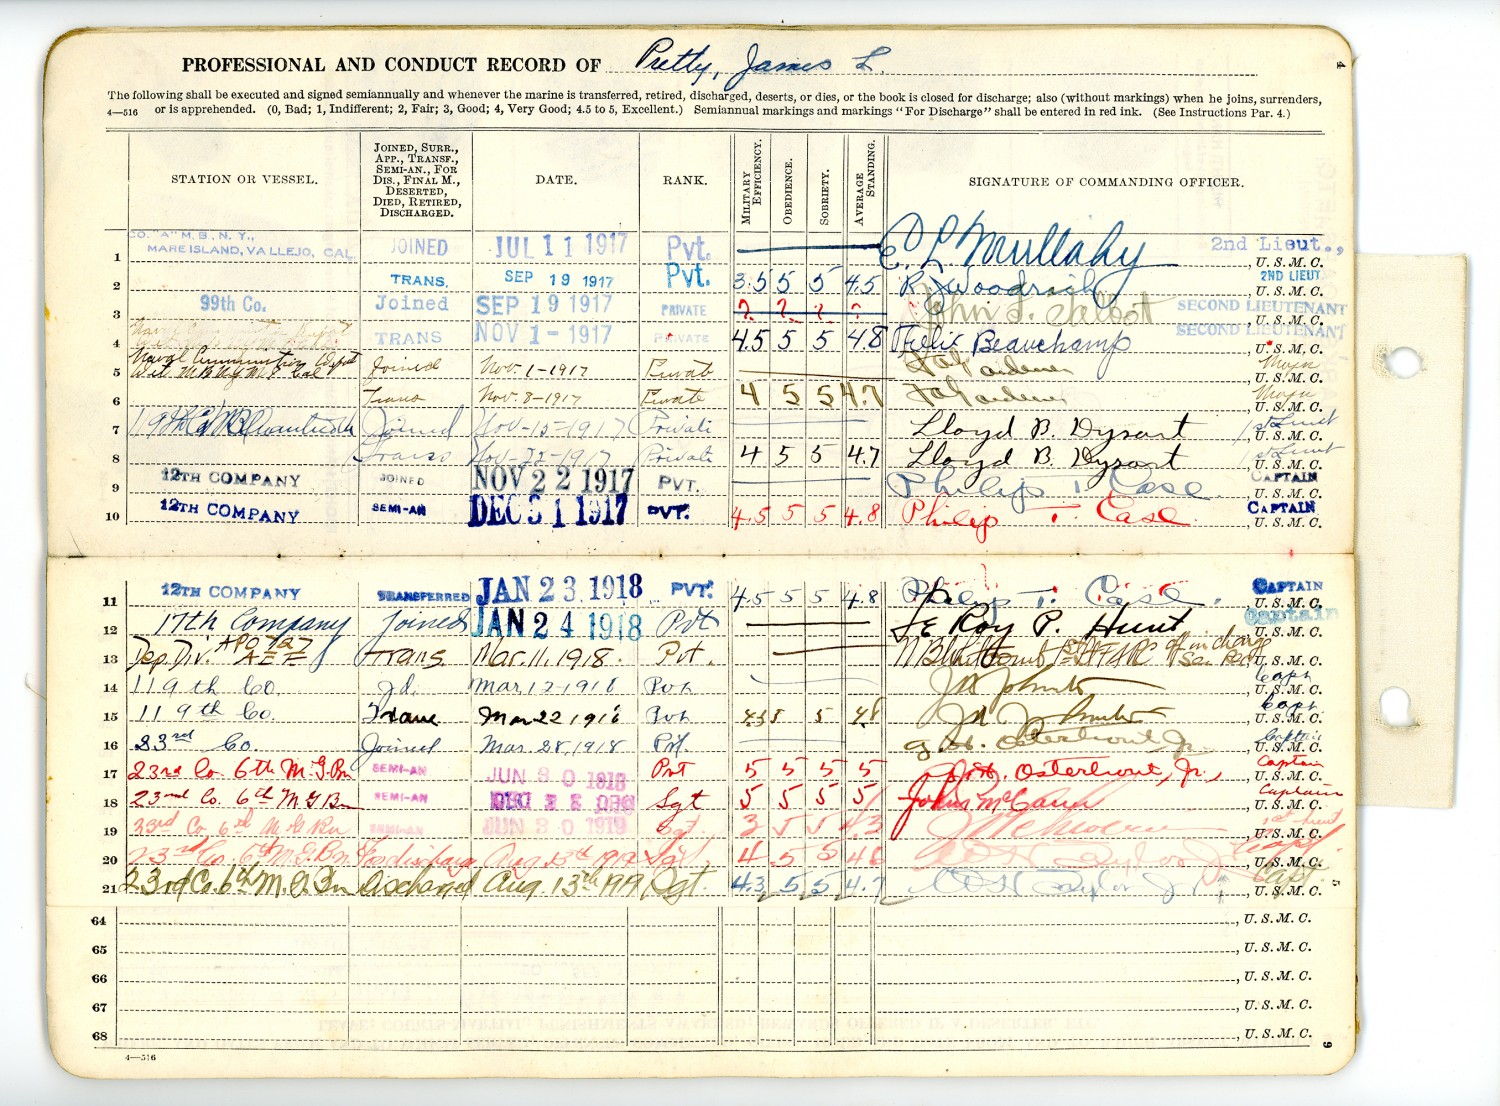 PROFESSIONAL AND CONDUCT RECORD OF Pretty, James L.
4
The following shall be executed and signed semiannually and whenever the marine is transferred, retired, discharged, deserts, or dies, or the book is closed for discharge; also (without markings) when he joins, surrenders,
4—516 or is apprehended. (0, Bad; 1, Indifferent; 2, Fair; 3, Good; 4, Very Good; 4.5 to 5, Excellent.) Semiannual markings and markings "For Discharge" shall be entered in red ink. (See Instructions Par. 4.)
STATION OR VESSEL. JOINED, SURR., APP., TRANSF., SEMI-AN., FOR DIS., FINAL M., DESERTED, DIED, RETIRED, DISCHARGED. DATE. RANK. MILITARY EFFICIENCY. OBEDIENCE. SOBRIETY. AVERAGE STANDING. SIGNATURE OF COMMANDING OFFICER.
CO. "A" M.B., N.Y.,
1 MARE ISLAND, VALLEJO, CAL. JOINED JUL 11 1917 Pvt. E. L. Mullaly 2nd Lieut., U.S.M.C.
2 TRANS. SEP 19 1917 Pvt. 3.5 5 5 4.5 R. Woodrich 2ND LIEUT , U.S.M.C.
3 99th Co. Joined SEP 19 1917 PRIVATE ? ? ? ? John F. Talbot SECOND LIEUTENANT , U.S.M.C.
4 TRANS NOV 1 - 1917 PRIVATE 4.5 5 5 4.8 Felix Beauchamp SECOND LIEUTENANT , U.S.M.C.
Naval Ammunition Depot
5 Joined Nov. 1-1917 Private Major , U.S.M.C.
6 Trans Nov. 8-1917 Private 4 5 5 4.7 Major , U.S.M.C.
7 119th Co MB Quantico Va Joined Nov-15-1917 Private Lloyd B. Dysart 1st Lieut , U.S.M.C.
8 Trans Nov-22-1917 Private 4 5 5 4.7 Lloyd B. Dysart 1st Lieut , U.S.M.C.
9 12TH COMPANY JOINED NOV 22 1917 PVT. Philip T. Case CAPTAIN , U.S.M.C.
10 12TH COMPANY SEMI-AN DEC 31 1917 PVT. 4.5 5 5 4.8 Philip T. Case CAPTAIN , U.S.M.C.
11 12TH COMPANY TRANSFERRED JAN 23 1918 PVT. 4.5 5 5 4.8 Philip T. Case. CAPTAIN , U.S.M.C.
12 17th Company Joined JAN 24 1918 Pvt LeRoy P. Hunt Captain , U.S.M.C.
13 Dep. Div. APO 727 AEF Trans Mar. 11. 1918. Pvt. off in charge , U.S.M.C.
14 119th Co. Jd. Mar 12-1918 Pvt Capt , U.S.M.C.
15 119th Co. Trans Mar 22 1918 Pvt 4.3 5 5 4.8 Capt , U.S.M.C.
16 23rd Co. Joined Mar. 28, 1918 Pvt. G. H. Osterhout, Jr. Captain , U.S.M.C.
17 23rd Co. 6th M.G. Bn SEMI-AN JUN 30 1918 Pvt 5 5 5 5 G. H. Osterhout, Jr., Captain , U.S.M.C.
18 23rd Co. 6th M G Bn SEMI-AN Sgt 5 5 5 5 John P. McCann Captain , U.S.M.C.
19 23rd Co. 6th M.G. Bn SEMI-AN JUN 30 1919 Sgt. 3 5 5 4.3 1st Lieut , U.S.M.C.
20 23rd Co. 6th M.G. Bn For discharge Aug 13th 1919 Sgt. 4 5 5 4.6 Capt. , U.S.M.C.
21 23rd Co. 6th M.G. Bn Discharged Aug. 13th 1919 Sgt. 4.3 5 5 4.7 Capt , U.S.M.C.
5
64 , U.S.M.C.
65 , U.S.M.C.
66 , U.S.M.C.
67 , U.S.M.C.
68 , U.S.M.C.
4—516
9